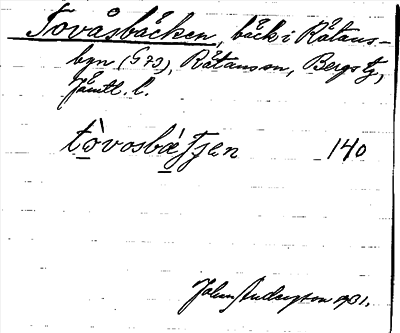 Tovåsbäcken, bäck i Rätans-
byn (G 73), Rätans sn, Bergs tg,
Jämtl. l.
tòvosbæ̀tjen 140
John Anderzson 1931.